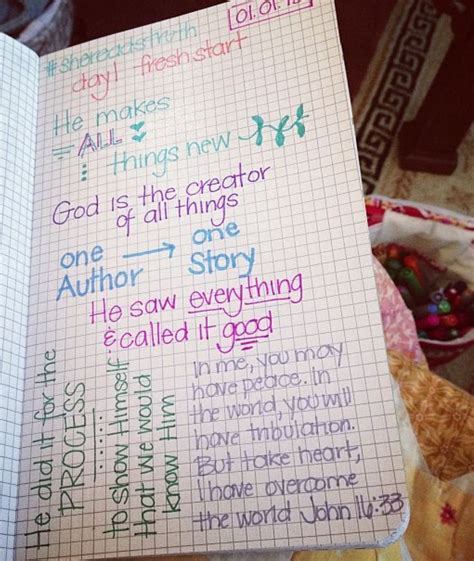 01.01.
#shereadstruth
day 1 fresh start
He makes
ALL
things new
God is the creator
of all things
one → one
Author Story
He saw everything
& called it good
He did it for the
PROCESS
to show Himself
that we would
know Him
In me, you may
have peace. In
the world, you will
have tribulation.
But take heart,
I have overcome
the world John 16:33